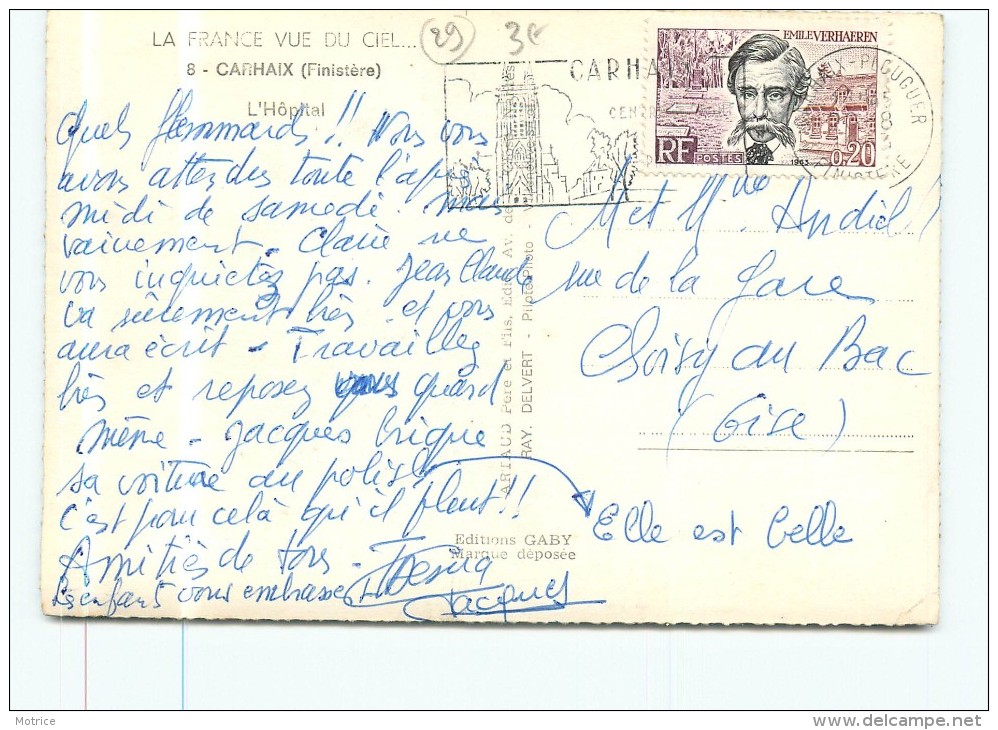 LA FRANCE VUE DU CIEL...
8 - CARHAIX (Finistère)
L'Hôpital
29
3€
CARHAIX
CEN
PLOUGUER
FINISTERE
EMILE VERHAEREN
RF
POSTES
1963
0,20
Quels flemmards !! Nous vous
avons attendus toute l'après
midi de samedi. mais
vainement. Claire ne
vous inquietez pas. Jean Claude
va sûrement bien et vous
aura écrit - Travaillez
bien et reposez vous quand
même - Jacques brique
sa voiture au polish
c'est pour celà qu'il pleut !!
Amitiés de tous -
Les enfants vous embrassent
Jacques
Elle est belle
M et Mme Andiol
rue de la Gare
Choisy au Bac
(Oise)
ARTAUD Père et Fils, Edit., Av. de
RAY. DELVERT - Pilote Photo - V
Editions GABY
Marque déposée
Motrice
delcampe.net